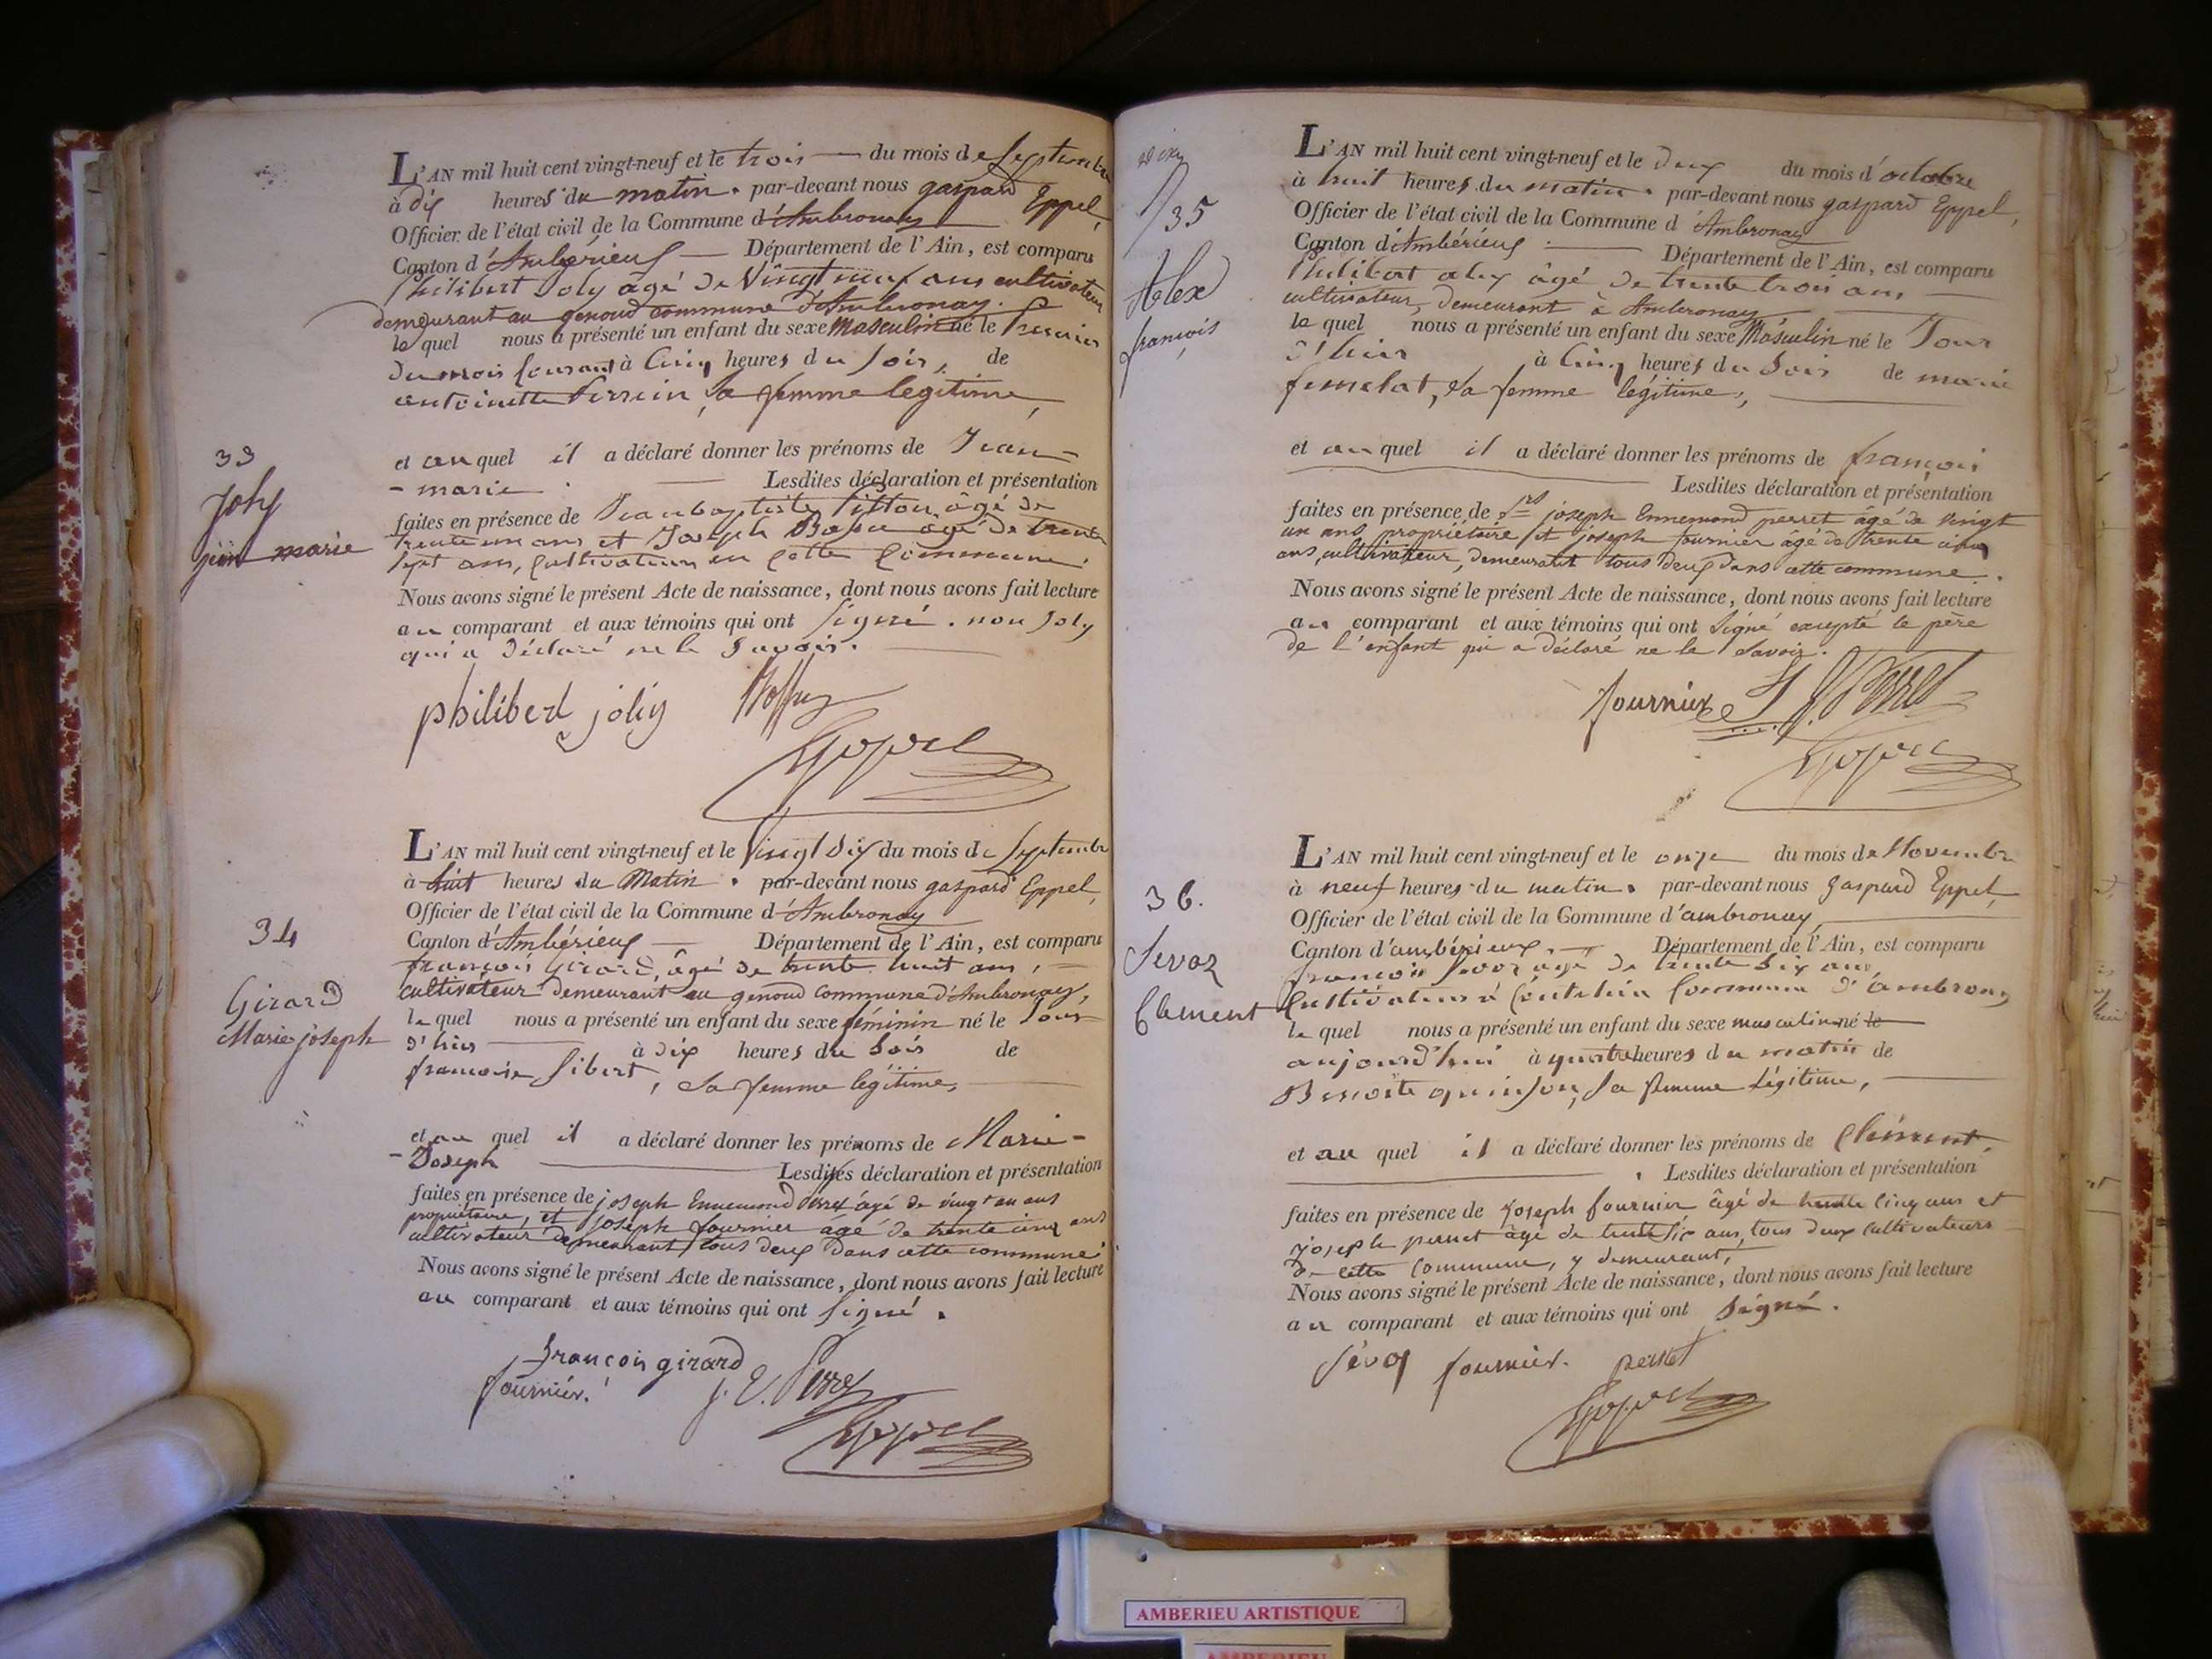 33
Joly
jean marie
L'AN mil huit cent vingt-neuf et le trois du mois de Septembre
à dix heures du matin. par-devant nous gaspard Eppel,
Officier de l'état civil de la Commune d'Ambronay
Canton d'Ambérieux Département de l'Ain, est comparu
Philibert Joly âgé de Vingt neuf ans cultivateur
demeurant au genoud commune d'Ambronay.
le quel nous a présenté un enfant du sexe Masculin né le Premier
du mois Courant à Cinq heures du Soir, de
antoinette Perrin, Sa femme legitime,
et au quel il a déclaré donner les prénoms de Jean-
- marie. Lesdites déclaration et présentation
faites en présence de Jean baptiste âgé de
trente un ans et Joseph âgé de trente
Sept ans, Cultivateurs en Cette Commune.
Nous avons signé le présent Acte de naissance, dont nous avons fait lecture
au comparant et aux témoins qui ont Signé. non Joly
qui a Déclaré ne le Savoir.
philiberd joliy
Eppel
34
Girard
Marie joseph
L'AN mil huit cent vingt-neuf et le Vingt Dix du mois de Septembre
à huit heures du Matin. par-devant nous gaspard Eppel,
Officier de l'état civil de la Commune d'Ambronay
Canton d'Ambérieux Département de l'Ain, est comparu
françois Girard, âgé de trente huit ans,
cultivateur demeurant au genoud commune d'Ambronay,
le quel nous a présenté un enfant du sexe féminin né le Jour
d'hier à dix heures du Soir de
francoise Sibert, Sa femme legitime,
et au quel il a déclaré donner les prénoms de Marie-
- Joseph Lesdites déclaration et présentation
faites en présence de joseph Ennemond Perret âgé de vingt un ans
propriétaire, et joseph fournier agé de trente cinq ans
cultivateur demeurant tous deux dans cette commune.
Nous avons signé le présent Acte de naissance, dont nous avons fait lecture
au comparant et aux témoins qui ont Signé.
françois girard
fournier. J. E. Perret
Eppel
35
Alex
françois
L'AN mil huit cent vingt-neuf et le Deux du mois d'octobre
à huit heures du matin. par-devant nous gaspard Eppel,
Officier de l'état civil de la Commune d'Ambronay
Canton d'Ambérieux Département de l'Ain, est comparu
Philibert alex âgé de trente trois ans
cultivateur, demeurant à Ambronay
le quel nous a présenté un enfant du sexe Masculin né le Jour
d'hier à Cinq heures du Soir de marie
femelat, sa femme légitime,
et au quel il a déclaré donner les prénoms de françois
Lesdites déclaration et présentation
faites en présence de Srs joseph Ennemond perret âgé de vingt
un ans propriétaire et joseph fournier agé de trente cinq
ans, cultivateur, demeurant tous deux dans cette commune.
Nous avons signé le présent Acte de naissance, dont nous avons fait lecture
au comparant et aux témoins qui ont Signé excepté le père
de l'enfant qui a déclaré ne le Savoir.
fournier J. E. Perret
Eppel
36.
Sevoz
Clement
L'AN mil huit cent vingt-neuf et le onze du mois de Novembre
à neuf heures du matin. par-devant nous gaspard Eppel,
Officier de l'état civil de la Commune d'ambronay,
Canton d'ambérieux, Département de l'Ain, est comparu
françois Sevoz agé de trente Six ans
Cultivateur à Commune d'ambronay
le quel nous a présenté un enfant du sexe masculin né le
aujourd'hui à quatre heures du matin de
Benoite quinson, Sa femme légitime,
et au quel il a déclaré donner les prénoms de Clément,
Lesdites déclaration et présentation
faites en présence de joseph fournier âgé de trente Cinq ans et
joseph pernet âgé de trente Six ans, tous deux Cultivateurs
de cette commune, y demeurant,
Nous avons signé le présent Acte de naissance, dont nous avons fait lecture
au comparant et aux témoins qui ont Signé.
Sévoz fournier. pernet
Eppel
AMBERIEU ARTISTIQUE
AMBERIEU